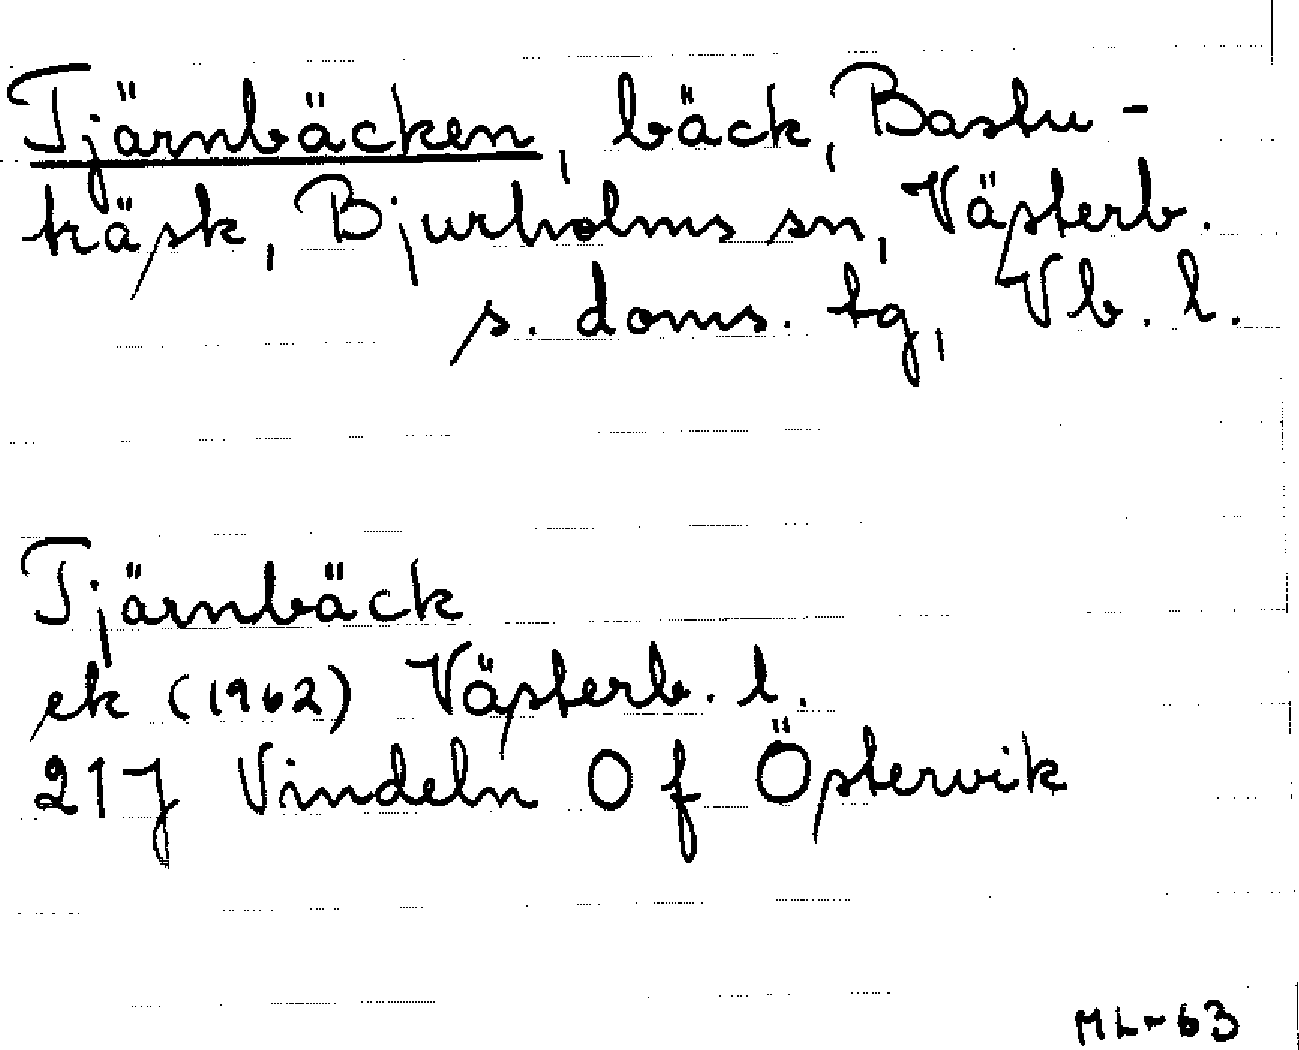 Tjärnbäcken, bäck, Bastu-
träsk, Bjurholms sn, Västerb.
s. doms. tg, Vb. l.
Tjärnbäck
ek (1962) Västerb. l.
21J Vindeln 0 f Östervik
ML-63